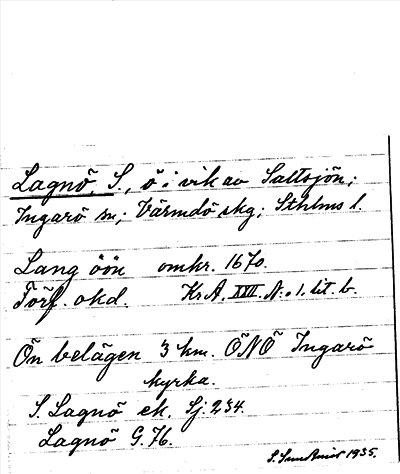 Lagnö, S., ö i vik av Saltsjön;
Ingarö sn; Värmdö skg; Sthlms l.
Lang öön omkr. 1670.
Förf. okd. Kr.A. XXII. N:o 1. lit. b.
Ön belägen 3 km. ÖNÖ Ingarö
kyrka.
S. Lagnö ek. Lj. 234.
Lagnö G. 76.
1935.